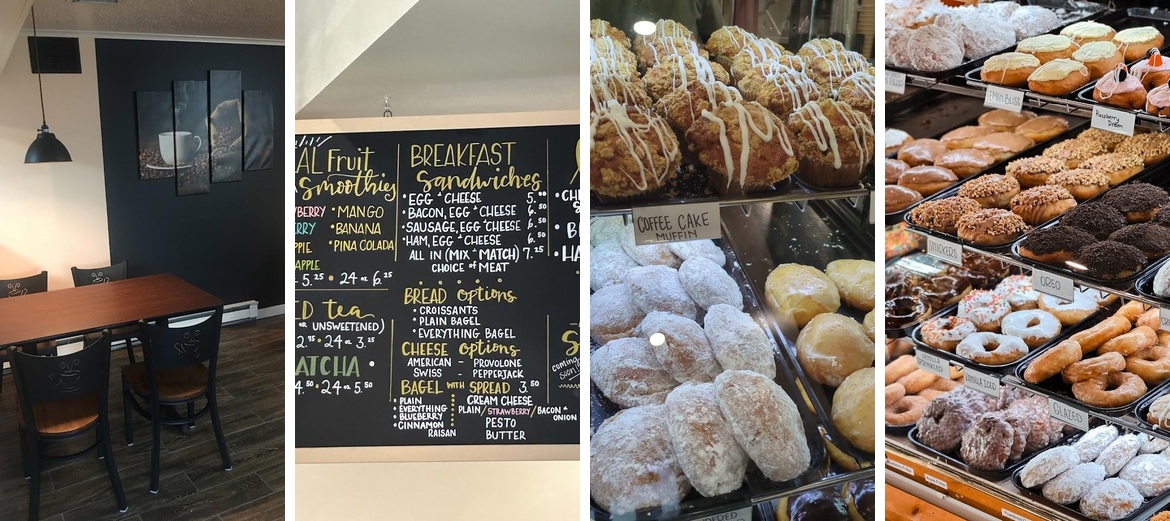 AL Fruit
Smoothies
BERRY
• MANGO
ERRY
• BANANA
PPLE
• PINA COLADA
APPLE
5.25 • 24oz 6.25
D tea
OR UNSWEETENED)
2.75 • 24oz 3.25
ATCHA
4.50 • 24oz 5.50
BREAKFAST
Sandwiches
• EGG & CHEESE 5.00
• BACON, EGG & CHEESE 6.50
• SAUSAGE, EGG & CHEESE 6.50
• HAM, EGG & CHEESE 6.50
ALL IN (MIX & MATCH) 7.25
CHOICE of MEAT
BREAD options
• CROISSANTS
• PLAIN BAGEL
• EVERYTHING BAGEL
CHEESE options
AMERICAN - PROVOLONE
SWISS - PEPPERJACK
BAGEL WITH SPREAD 3.50
• PLAIN
• EVERYTHING
• BLUEBERRY
• CINNAMON
RAISAN
CREAM CHEESE
PLAIN / STRAWBERRY / BACON & ONION
PESTO
BUTTER
• CH
• B
• HA
coming
soon
COFFEE CAKE
MUFFIN
DERED
LEMON BLISS
Raspberry
Dream
SNICKERS
OREO
VANILLA
SPRINKLED
VANILLA ICED
GLAZED